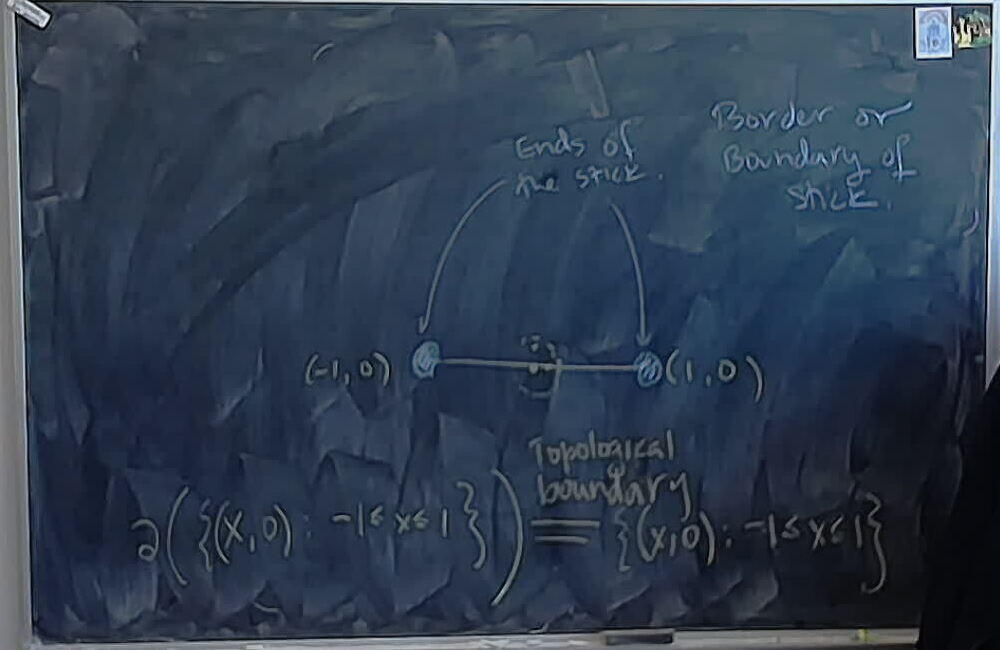 Ends of
the stick.
Border or
Boundary of
stick.
(-1,0)
(1,0)
Topological
boundary
∂({(x,0): -1≤x≤1}) = {(x,0): -1≤x≤1}